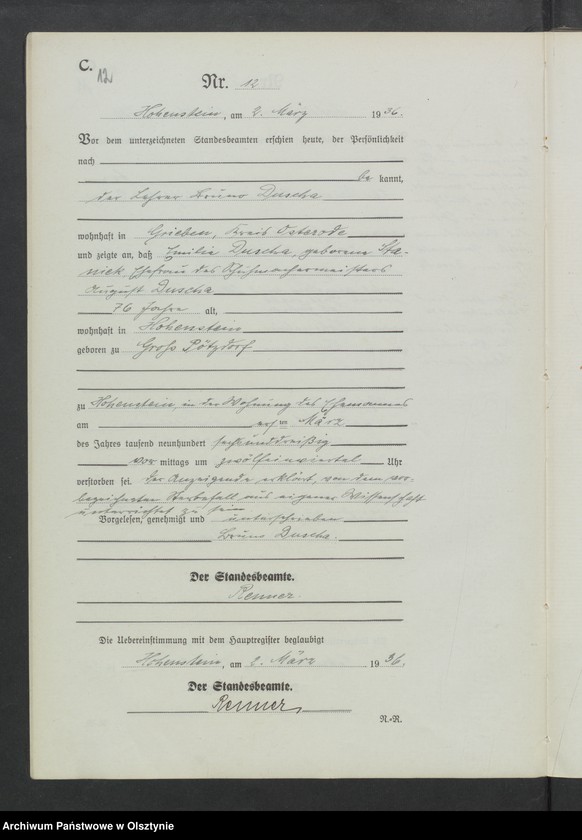 C.
12
Nr. 12
Hohenstein, am 2. März 1936.
Vor dem unterzeichneten Standesbeamten erschien heute, der Persönlichkeit
nach
be kannt,
der Lehrer Bruno Duscha
wohnhaft in Grieben, Kreis Osterode
und zeigte an, daß Emilie Duscha, geborene Sta-
niek Ehefrau des Schuhmachermeisters
August Duscha
76 Jahre alt,
wohnhaft in Hohenstein
geboren zu Groß Pötzdorf
zu Hohenstein, in der Wohnung des Ehemannes
am ersten März
des Jahres tausend neunhundert sechsunddreißig
vor mittags um zwölfeinviertel Uhr
verstorben sei. Der Anzeigende erklärt, von dem vor-
bezeichneten Sterbefall aus eigener Wissenschaft
unterrichtet zu sein
Vorgelesen, genehmigt und unterschrieben
Bruno Duscha.
Der Standesbeamte.
Renner.
Die Uebereinstimmung mit dem Hauptregister beglaubigt
Hohenstein, am 2. März 1936.
Der Standesbeamte.
Renner
N.-R.
Archiwum Państwowe w Olsztynie